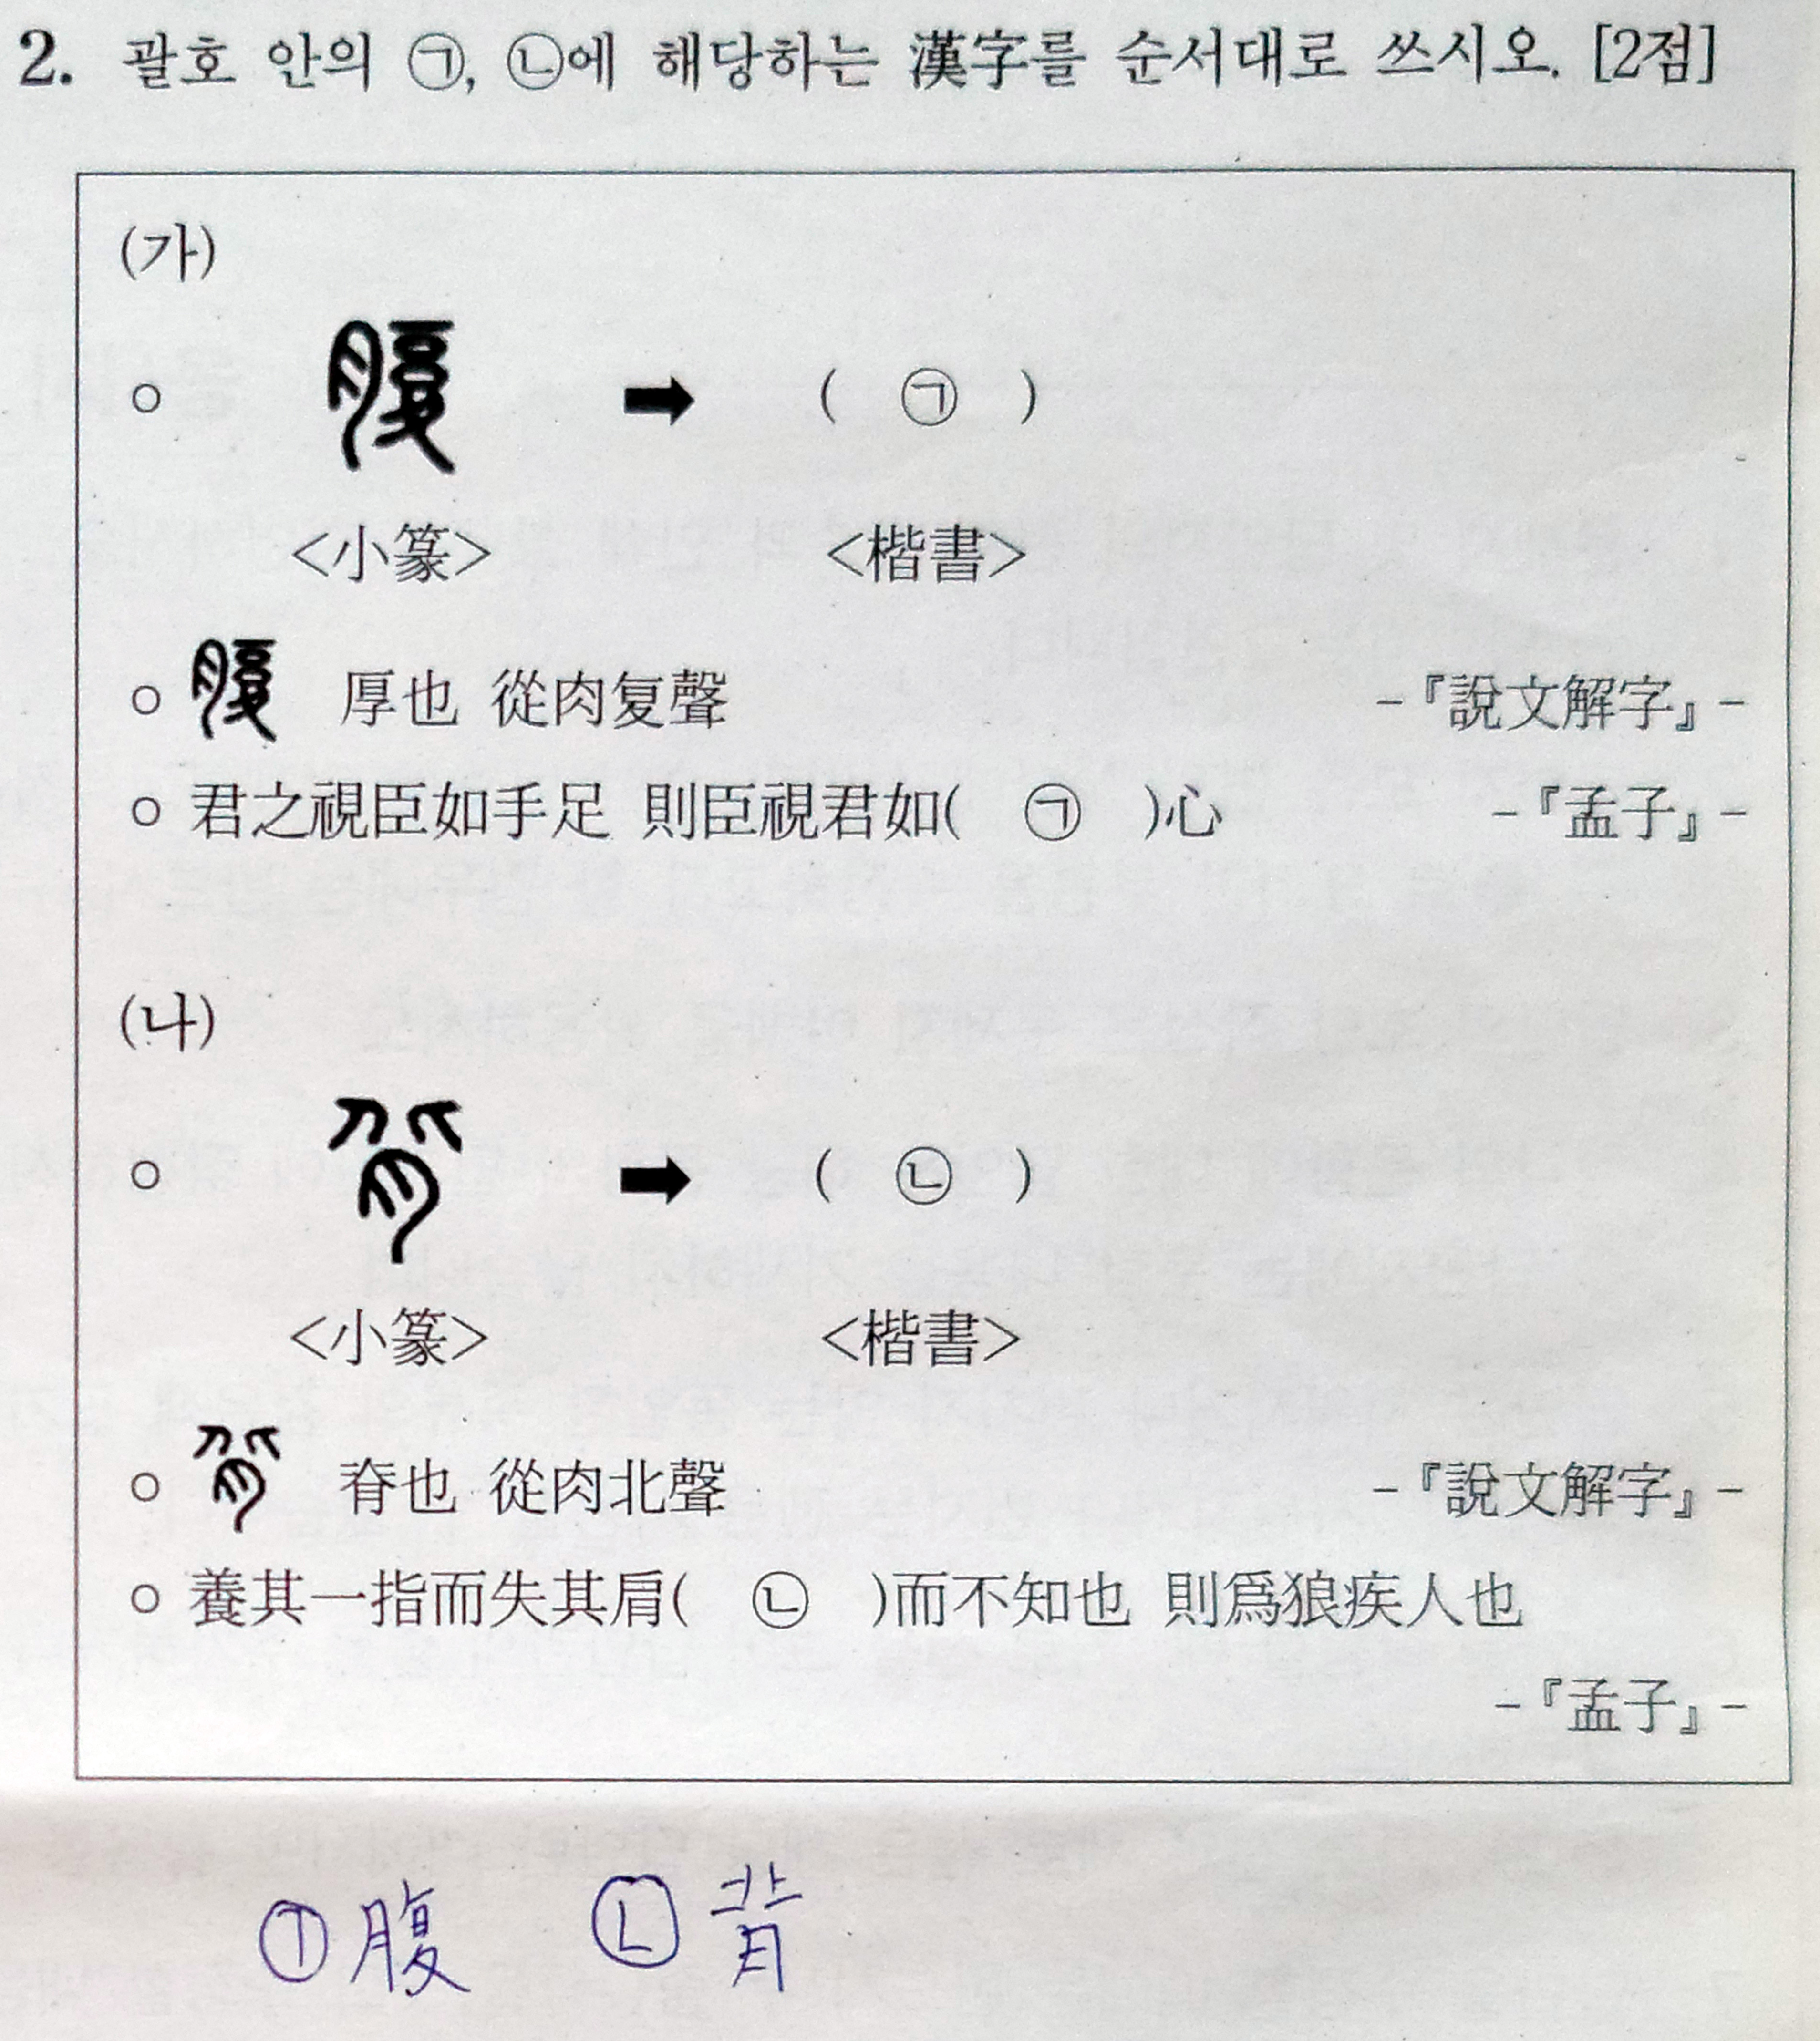 2. 괄호 안의 ㉠, ㉡에 해당하는 漢字를 순서대로 쓰시오. [2점]
(가)
○ 腹 ➡ ( ㉠ )
<小篆> <楷書>
○ 腹 厚也 從肉复聲 -『說文解字』-
○ 君之視臣如手足 則臣視君如( ㉠ )心 -『孟子』-
(나)
○ 背 ➡ ( ㉡ )
<小篆> <楷書>
○ 背 脊也 從肉北聲 -『說文解字』-
○ 養其一指而失其肩( ㉡ )而不知也 則爲狼疾人也
-『孟子』-
㉠ 腹 ㉡ 背